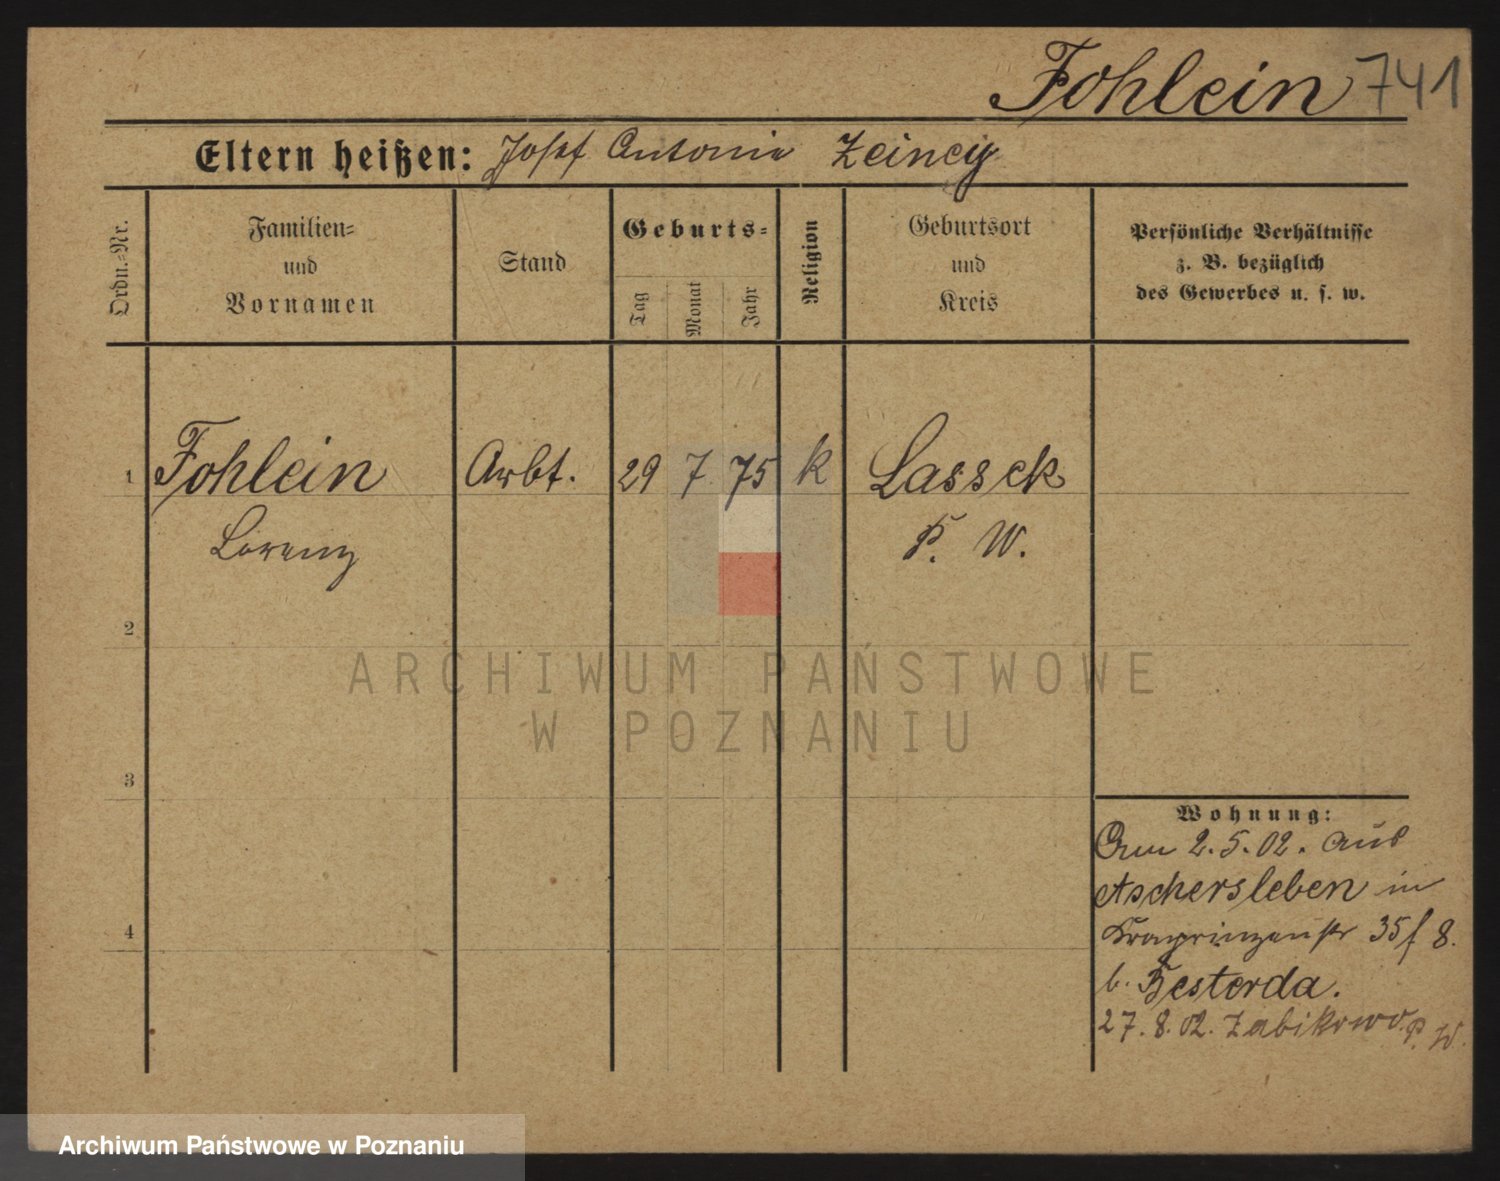 Fohlein 741
Eltern heißen: Josef Antonie Zeincy
Ordn.=Nr.
Familien=
und
Vornamen
Stand
Geburts=
Tag
Monat
Jahr
Religion
Geburtsort
und
Kreis
Persönliche Verhältnisse
z. B. bezüglich
des Gewerbes u. s. w.
1 Fohlein Arbt. 29 7. 75 k Lassek
Lorenz P. W.
2
3
4
Wohnung:
Am 2.5.02. aus
Aschersleben in
Kronprinzenstr 35f 8.
b. Besterda.
27.8.02. Zabikowo. P. W.
ARCHIWUM PAŃSTWOWE
W POZNANIU
Archiwum Państwowe w Poznaniu